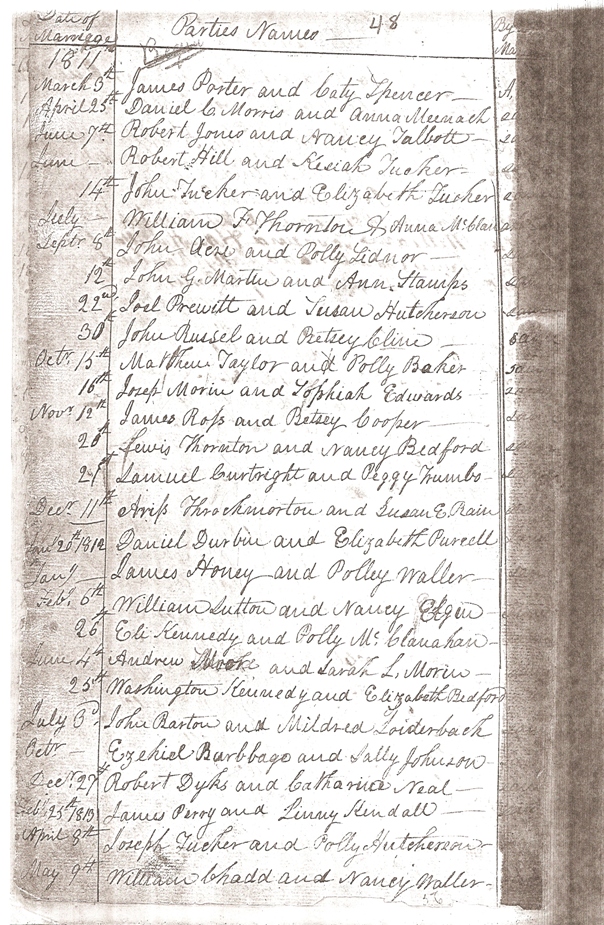 Date of Marriage Parties Names — 48 By
1811
March 5th James Porter and Caty Spencer — A.
April 25th Daniel C Morris and Anna Meenach
June 7th Robert Jones and Nancy Talbott —
June — Robert Hill and Kesiah Tucker —
14th John Tucker and Elizabeth Tucker
July — William F Thornton & Anna McClan
Septr 8th John Acre and Polly Lidnor —
12th John G. Martin and Ann Stamps
22nd Joel Prewitt and Susan Hutcherson
30th John Russel and Betsey Cline —
Octr 15th Matthew Taylor and Polly Baker
16th Josep Morin and Sophiah Edwards —
Novr 12th James Ross and Betsey Cooper —
20th Lewis Thornton and Nancy Bedford
27th Samuel Curtright and Peggy Trumbo —
Decr 11th Ariss Throckmorton and Susan E. Rain
Jany 20th 1812 Daniel Durbin and Elizabeth Purcell
Jany — James Honey and Polley Waller —
Feby 6th William Sutton and Nancy Elgin
26th Eli Kennedy and Polly McClanahan —
June 4th Andrew Moore and Sarah L. Morin —
25th Washington Kennedy and Elizabeth Bedford
July 3d John Barton and Mildred Loiderback
Octr — Ezekiel Burbbago and Sally Johnson —
Decr 27th Robert Dyks and Catharine Neal —
Feby 25th 1813 James Perry and Linny Kendall —
April 8th Joseph Tucker and Polly Hutcherson
May 9th William Chadd and Nancy Waller —